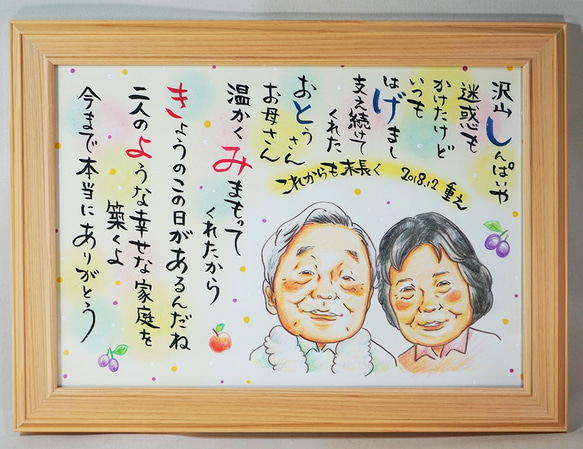 沢山しんぱいや
迷惑も
かけたけど
いつも
はげまし
支え続けて
くれた
おとうさん
お母さん
温かくみまもって
くれたから
きょうのこの日があるんだね
二人のような幸せな家庭を
築くよ
今まで本当にありがとう
これからも末長く
2018.12 重え